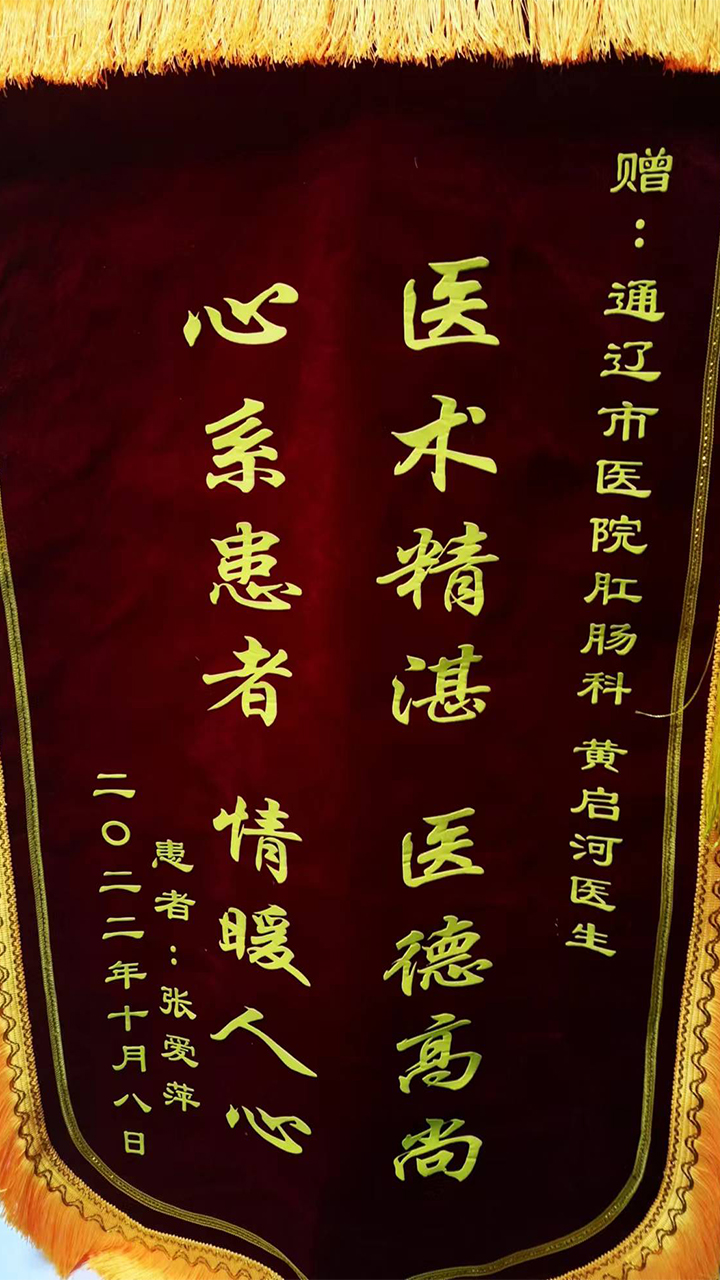 赠：通辽市医院肛肠科 黄启河医生
医术精湛 医德高尚
心系患者 情暖人心
患者：张爱萍
二〇二二年十月八日